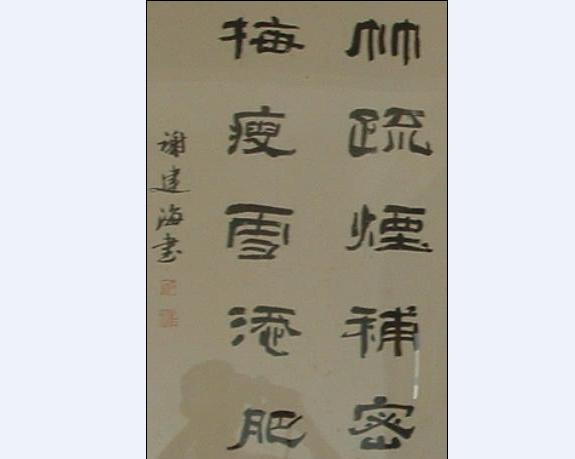 竹疏煙補密
梅瘦雪添肥
謝建海書